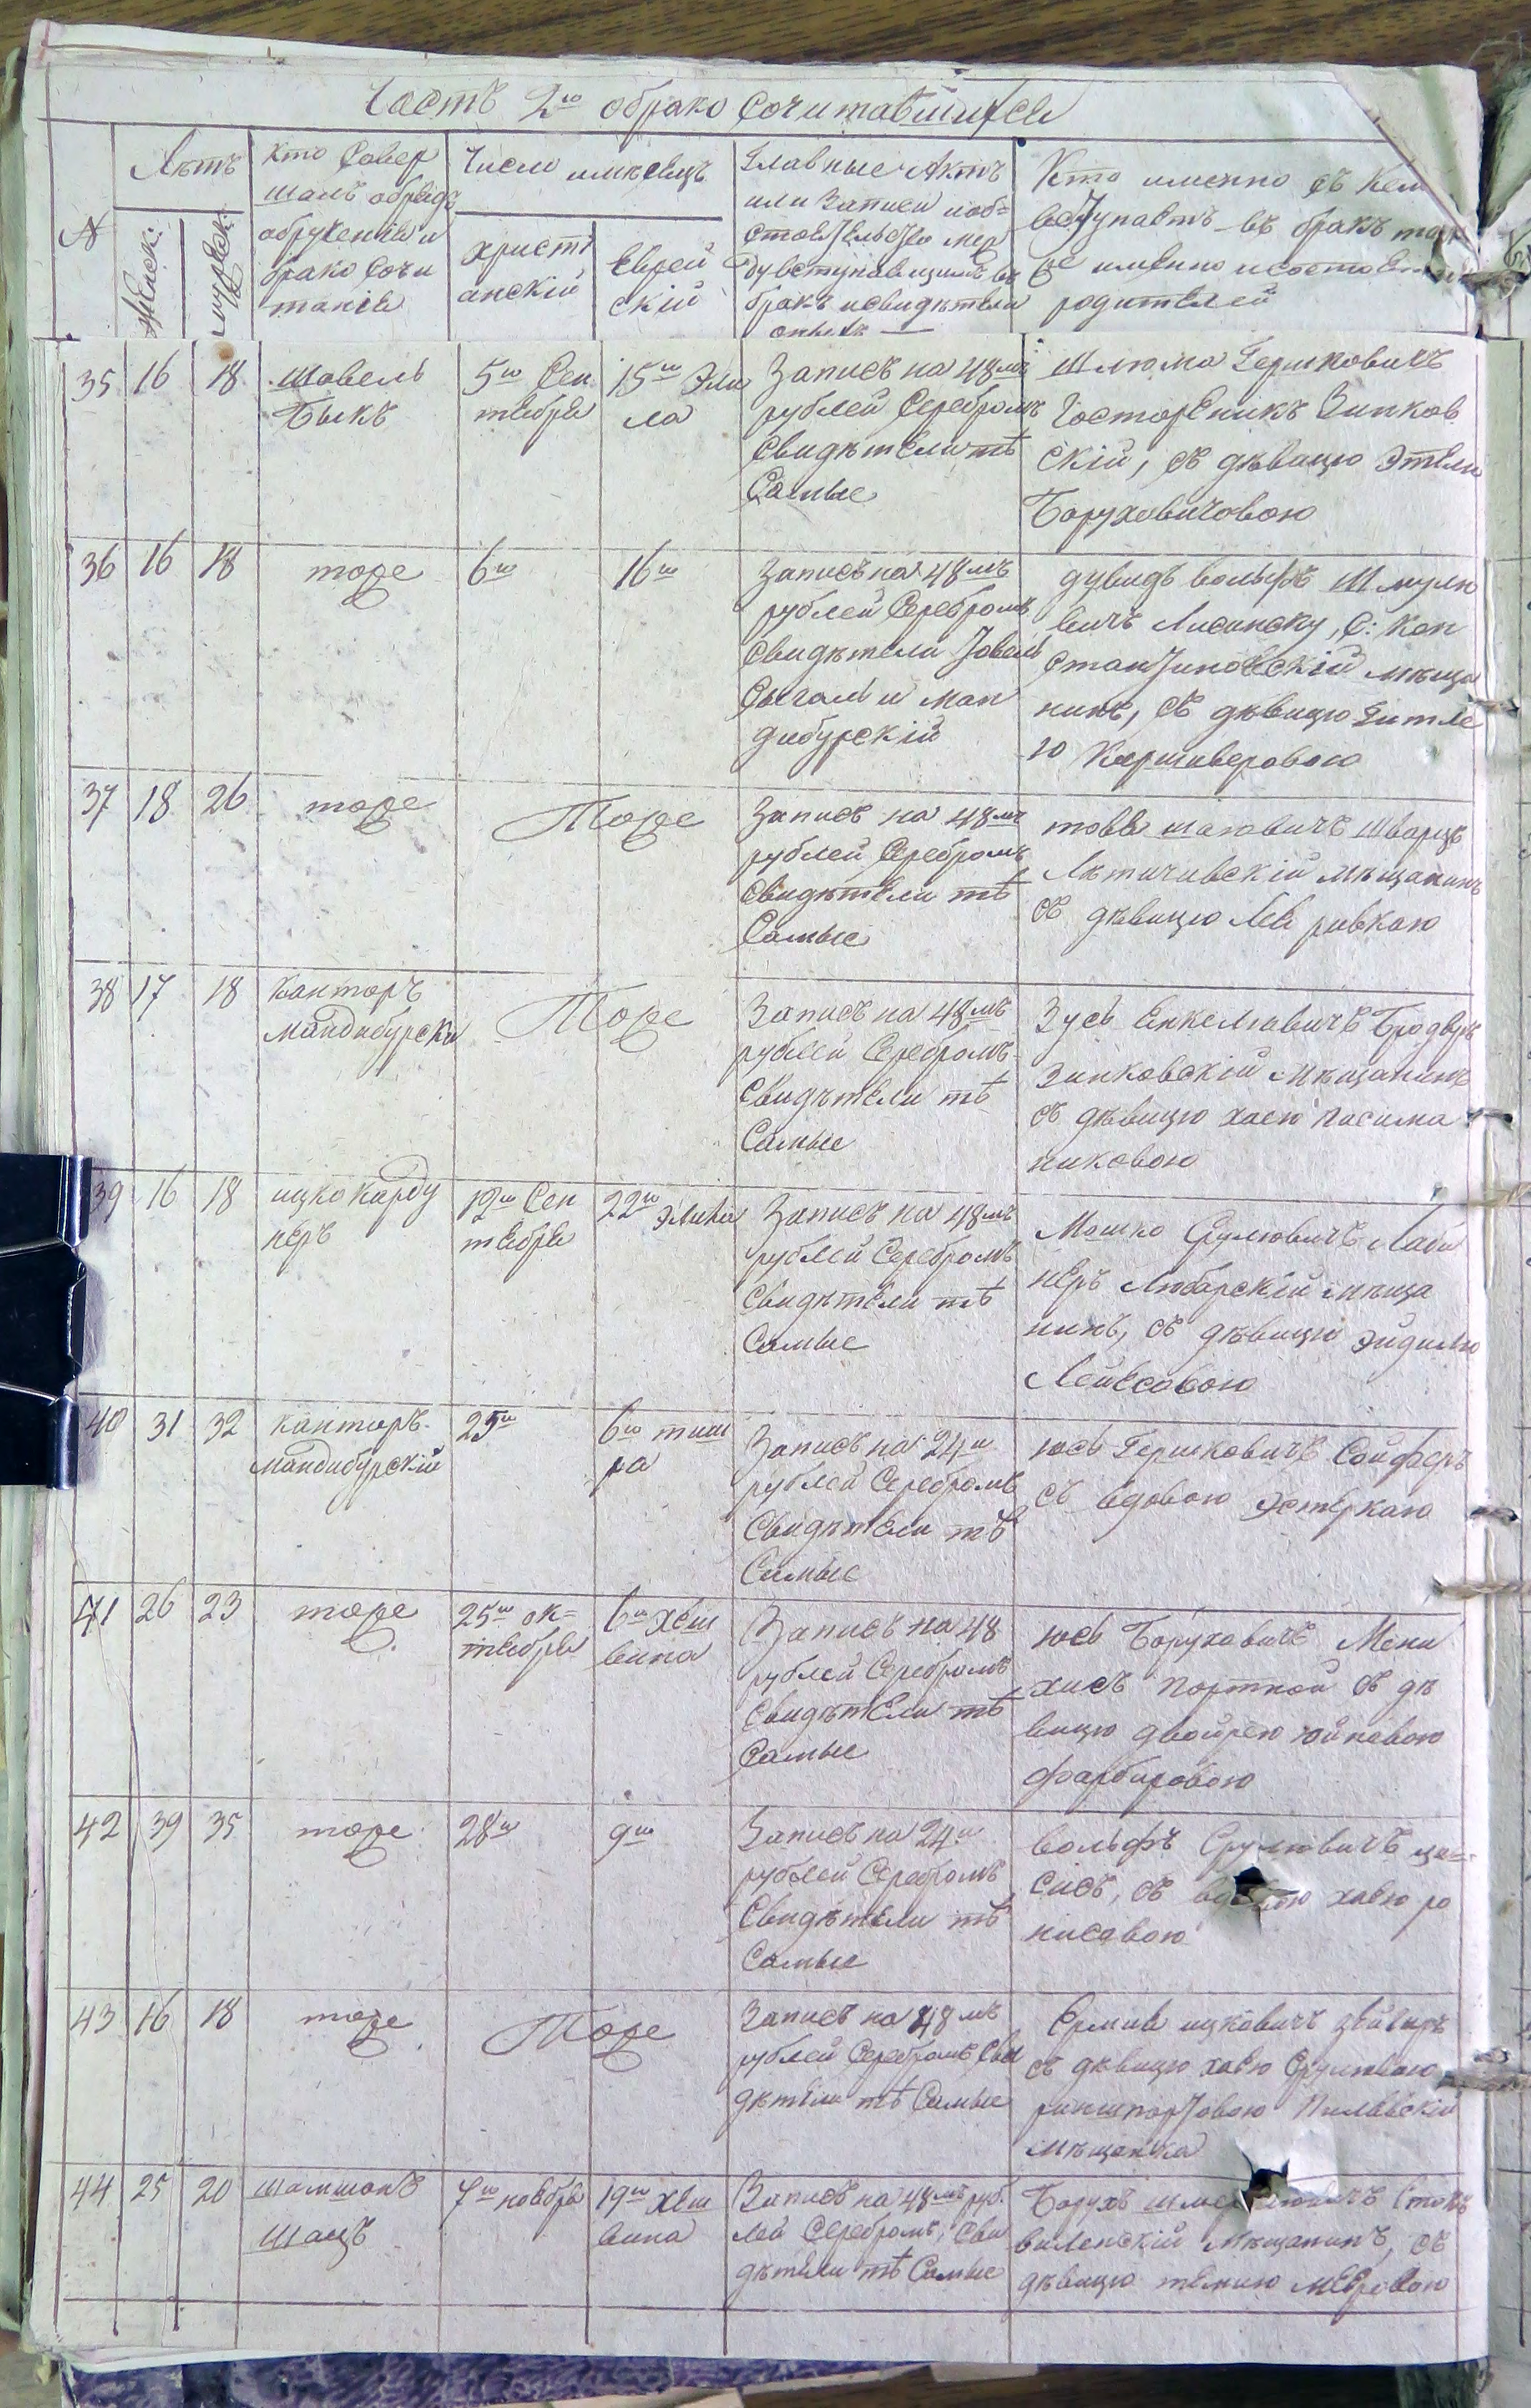 Часть 2ю о брако Сочитавшихся
№
Лѣтъ
Женск:
мужеск:
Кто Совер
шалъ обрядъ
обрученія и
брако Сочи
танія
Число и мѣсяцъ
христі
анскій
Еврей
скій
Главные Актъ
или Записи и об=
стоятельство меж
ду вступившимъ въ
бракъ и свидѣтели
оныхъ
Кто именно съ кем
вступаетъ въ бракъ
именно и состоян
родителей
35 16 18
Шавель
Быкъ
5го Сен
тября
15го Эли
ла
Запись на 48мъ
рублей Серебромъ
Свидѣтели тѣ
Самые
Шлюма Гершковичъ
Зиньков
скій, съ дѣвицю Этели
Боруховичовою
36 16 18
тоже
6го
16го
Запись на 48мъ
рублей Серебромъ
Свидѣтели
и Ман
дибурскій
дувидъ вольфъ Шмулю
вичъ С: Кон
стантиновскій мѣща
нинъ, съ дѣвицю Гитле
ю
37 18 26
тоже
Тоже
Запись на 48мъ
рублей Серебромъ
Свидѣтели тѣ
Самые
Шварцъ
Лѣтичивскій мѣщанинъ
съ дѣвицю Лея ривкаю
38 17 18
канторъ
мандибурскі
Тоже
Запись на 48мъ
рублей Серебромъ
Свидѣтели тѣ
Самые
Зусь Енкелювичъ
Зинковскій мѣщанинъ
съ дѣвицю хаею Пасима
никовою
39 16 18
ицко карду
неръ
12го Сен
тября
22го Элила
Запись на 48мъ
рублей Серебромъ
Свидѣтели тѣ
Самые
Мошко Срулювичъ
неръ Любарскій мѣща
нинъ, съ дѣвицю Эйдилю
Лейбсовою
40 31 32
канторъ
мандибурскій
25го
6го тиш
ра
Запись на 24и
рублей Серебромъ
Свидѣтели тѣ
Самые
юсь Гершковичъ Сойферъ
съ вдовою Эстеркаю
41 26 23
тоже
25го ок=
тября
6го хеш
вина
Запись на 48
рублей Серебромъ
Свидѣтели тѣ
Самые
юсь Боруховичъ Мени
хисъ Портной съ дѣ
вицю двойрею юйновою
фарбировою
42 39 35
тоже
28го
9го
Запись на 24и
рублей Серебромъ
Свидѣтели тѣ
Самые
вольфъ Срулювичъ
съ хавою ро
нисовою
43 16 18
тоже
Тоже
Запись на 48мъ
рублей Серебромъ Сви
дѣтели тѣ Самые
Ермия ицковичъ
съ дѣвицю хаею Срулювою
Пилявскій
Мѣщанка
44 25 20
шамшонъ
шацъ
7го ноября
19го хеш
вина
Запись на 48мъ руб.
лей Серебромъ, Сви
дѣтели тѣ Самые
Борухъ
виленскій Мѣщанинъ, съ
дѣвицю темию мееровою